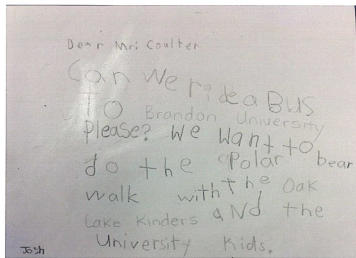 Dear Mr. Coulter
Can We ride a BUS
TO Brandon University
Please? We Want to
do the Polar bear
walk with the Oak
Lake Kinders aNd the
University Kids.
Josh